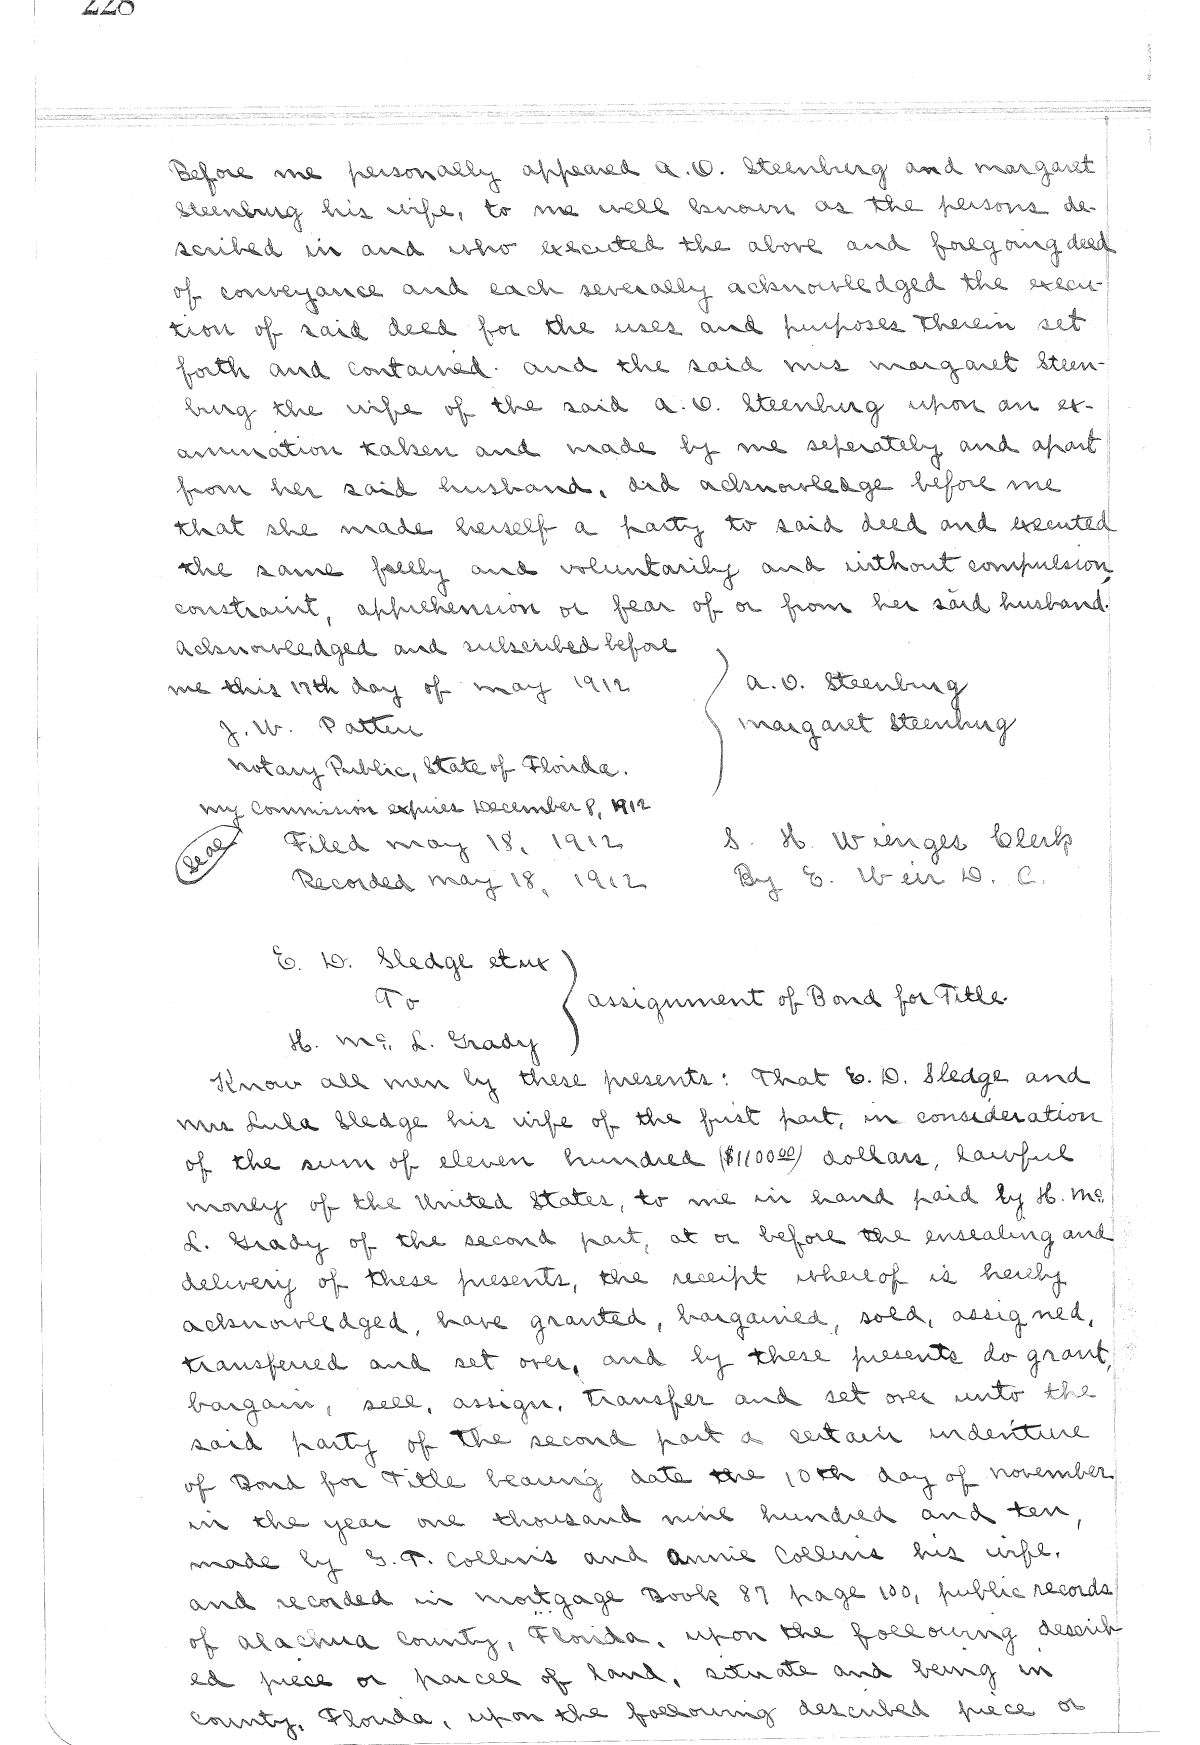 228
Before me personally appeared A. O. Steenburg and Margaret
Steenburg his wife, to me well known as the persons de-
scribed in and who executed the above and foregoing deed
of conveyance and each severally acknowledged the execu-
tion of said deed for the uses and purposes therein set
forth and contained. and the said Mrs Margaret Steen-
burg the wife of the said A. O. Steenburg upon an ex-
amination taken and made by me seperately and apart
from her said husband, did acknowledge before me
that she made herself a party to said deed and executed
the same freely and voluntarily and without compulsion,
constraint, apprehension or fear of or from her said husband.
Acknowledged and subscribed before
me this 17th day of May 1912
A. O. Steenburg
Margaret Steenburg
J. W. Patten
Notary Public, State of Florida.
My Commission expires December 8, 1912
Seal
Filed May 18, 1912 S. H. Wienges Clerk
Recorded May 18, 1912 By E. Weir D. C.
E. D. Sledge et ux
To
Assignment of Bond for Title.
H. Mc. L. Grady
Know all men by these presents: That E. D. Sledge and
Mrs Lula Sledge his wife of the first part, in consideration
of the sum of eleven hundred ($1100.00) dollars, lawful
money of the United States, to me in hand paid by H. Mc.
L. Grady of the second part, at or before the ensealing and
delivery of these presents, the receipt whereof is hereby
acknowledged, have granted, bargained, sold, assigned,
transferred and set over, and by these presents do grant,
bargain, sell, assign, transfer and set over unto the
said party of the second part a certain indenture
of Bond for Title bearing date the 10th day of November
in the year one thousand nine hundred and ten,
made by G. T. Collins and Annie Collins his wife,
and recorded in Mortgage Book 87 page 100, public records
of Alachua County, Florida, upon the following describ-
ed piece or parcel of land, situate and being in
County, Florida, upon the following described piece or